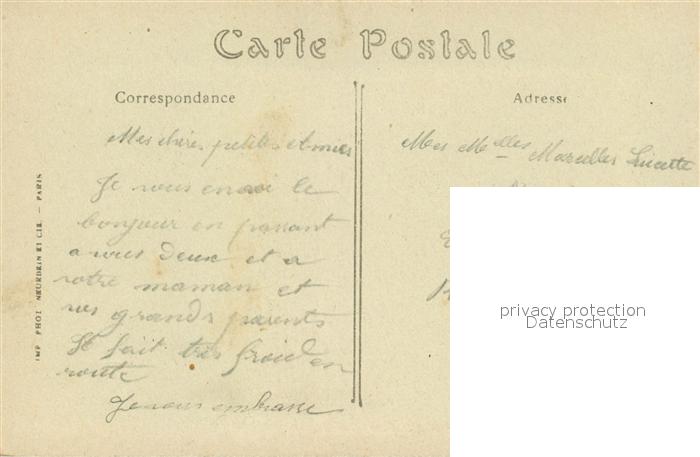 Carte Postale
Correspondance
Adresse
Mes chères petites Amies
Je vous envoi le
bonjour en passant
a vous deux et a
votre maman et
vos grands parents
Il fait très froid en
route
Je vous embrasse
Mes Melles Marcelles Lucette
IMP PHOT NEURDEIN ET CIE. — PARIS
privacy protection
Datenschutz